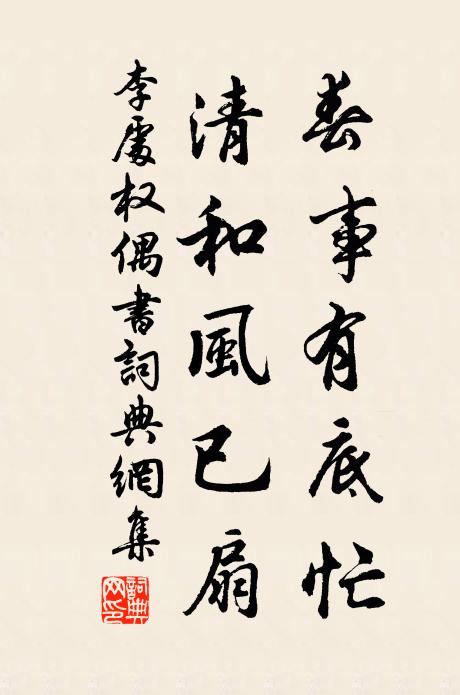 春事有底忙
清和風已扇
李處权偶書詞典網集
詞典网印